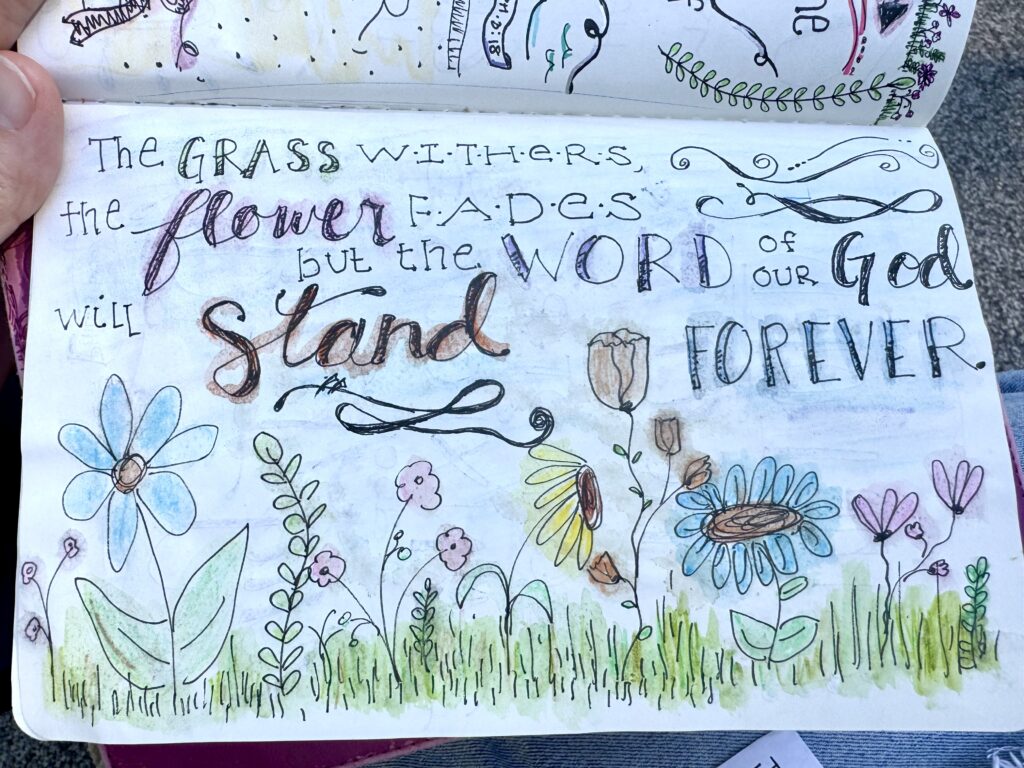 4:8:18
ne
The GRASS W·I·T·H·e·R·S,
the flower F·A·D·e·S
but the WORD of OUR God
will Stand FOREVER.